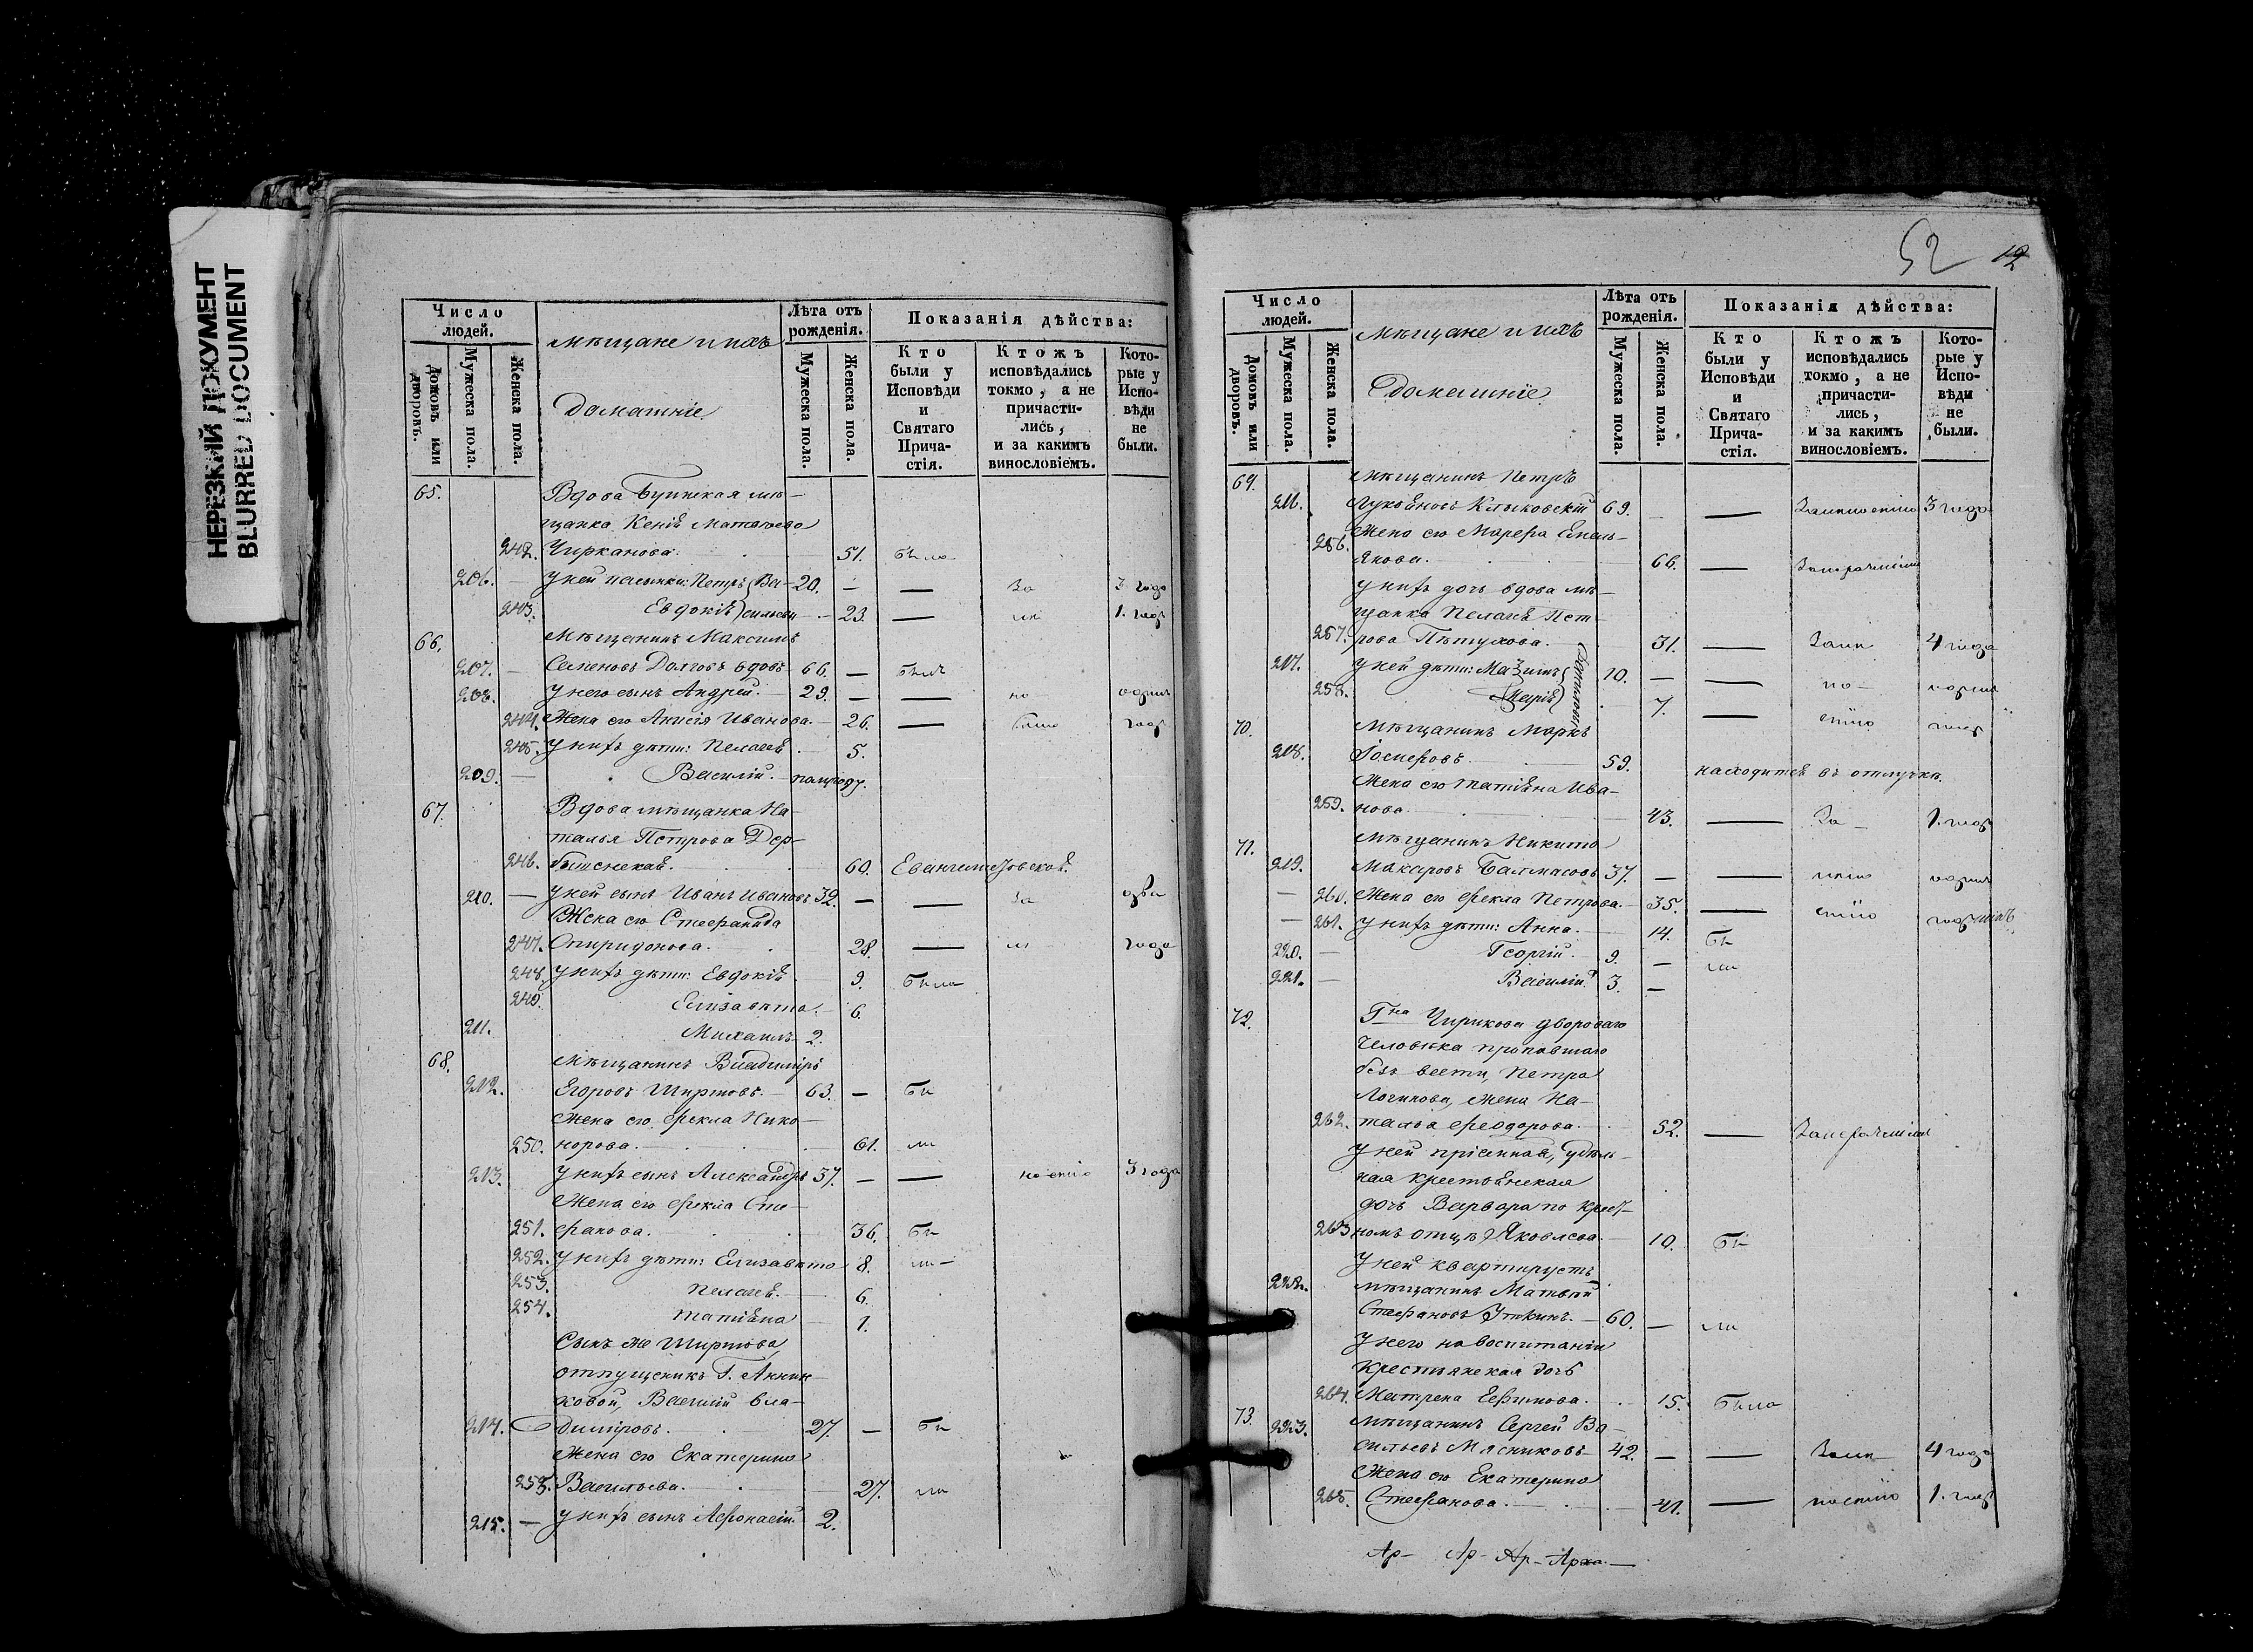 НЕРЕЗКИЙ ДОКУМЕНТ
BLURRED DOCUMENT
Число людей.
Домовъ или дворовъ.
Мужеска пола.
Женска пола.
Мѣщане и ихъ
Домашніе
Лѣта отъ рожденія.
Мужеска пола.
Женска пола.
Показанія дѣйства:
Кто были у Исповѣди и Святаго Причастія.
Ктожъ исповѣдались токмо, а не причастились, и за какимъ винословіемъ.
Которые у Исповѣди не были.
65. Вдова Буинская мѣ-
щанка Ксенія Матвѣева
242. Чирканова. 51. была
206. — У ней пасынки: Петръ Ва- 20. — — За 3 года
243. Евдокія сильевы 23. — 1. годъ
66. Мѣщанинъ Максимъ
207. — Семеновъ Долговъ вдовъ 66. — былъ
208. У него сынъ Андрей. 29. — — одинъ
244. Жена его Анисія Иванова. 26. — годъ
245. У нихъ дѣти: Пелагея 5.
209. — Василій. полугоду.
67. Вдова мѣщанка На-
талья Петрова Дер-
246. бышенская. 60.
210. — У ней сынъ Иванъ Ивановъ 32. — — За два
Жена его Стефанида
247. Спиридонова. 28. — года
248. У нихъ дѣти: Евдокія 9. была
249. Елизавета. 6.
211. Михаилъ 2.
68. Мѣщанинъ Владиміръ
212. Егоровъ Ширтовъ. 63. — Бы
Жена его Ѳекла Нико-
250. норова. 61. ли
213. У нихъ сынъ Александръ 37. — — 3 года
Жена его Ѳекла Сте-
251. фанова. 36. Бы
252. У нихъ дѣти: Елизавета 8. ли
253. Пелагея. 6.
254. Татіяна 1.
Сынъ же Ширтова,
отпущеникъ Г. Аннен-
ковой, Василій Вла-
214. диміровъ. 27. — Бы
Жена его Екатерина
255. Васильева. 27. ли
215. — У нихъ сынъ Аѳонасій 2.
52 12
Число людей.
Домовъ или дворовъ.
Мужеска пола.
Женска пола.
Мѣщане и ихъ
Домашніе
Лѣта отъ рожденія.
Мужеска пола.
Женска пола.
Показанія дѣйства:
Кто были у Исповѣди и Святаго Причастія.
Ктожъ исповѣдались токмо, а не причастились, и за какимъ винословіемъ.
Которые у Исповѣди не были.
69. Мѣщанинъ Петръ
216. Лукояновъ 69. — 3 года
256. Жена его Марѳа Емель-
янова. 66. —
у нихъ дочь вдова мѣ-
щанка Пелагея Пет-
257. рова Пѣтухова. 31. — 4 года
217. У ней дѣти: 10. — —
258. Марія 7. — годъ
70. Мѣщанинъ Маркъ
218. 59. находится въ отлучкѣ.
Жена его Татіяна Ива-
259. нова 43. — За 1. годъ
71. Мѣщанинъ Никита
219. Макаровъ Балмасовъ 37. — —
— 260. Жена его Ѳекла Петрова. 35. —
— 261. У нихъ дѣти: Анна. 14. Бы
220. — Георгій. 9. — ли
221. — Василій 3. —
72. Гна Чирикова двороваго
человѣка пропавшаго
безъ вести, Петра
Логинова, жена На-
262. талья Ѳеодорова. 52. —
У ней пріемная, удѣль-
ная крестьянская
дочь Варвара по крест-
263 номъ отцѣ Яковлева. 10. Бы
У ней квартируетъ
222. мѣщанинъ Матвѣй
Стефановъ Уткинъ. 60. — ли
У него на воспитаніи
крестьянская дочь
264. Матрена Ефимова. 15. Была
73. 223. Мѣщанинъ Сергей Ва-
сильевъ Мясниковъ 42. — — 4 года
Жена его Екатерина
265. Стефанова. 41. — 1. годъ
Ар- Ар- Ар- Арха.